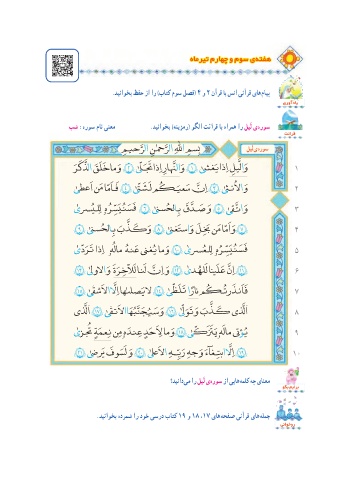 هفته‌ی سوم و چهارم تیرماه
پیام‌های قرآنی انس با قرآن ۲ و ۴ (فصل سوم کتاب) را از حفظ بخوانید.
یادآوری
سوره‌ی لیل را همراه با قرائت الگو (رمزینه) بخوانید. معنی نام سوره : شب
قرائت
سوره‌ی لیل بِسمِ اللّٰهِ الرَّحمٰنِ الرَّحیمِ
وَالَّیلِ اِذا یَغشیٰ ۱ وَالنَّهارِ اِذا تَجَلّیٰ ۲ وَ ما خَلَقَ الذَّکَرَ ۱
وَالاُنثیٰ ۳ اِنَّ سَعیَکُم لَشَتّیٰ ۴ فَاَمّا مَن اَعطیٰ ۲
وَاتَّقیٰ ۵ وَ صَدَّقَ بِالحُسنیٰ ۶ فَسَنُیَسِّرُهٗ لِلیُسریٰ ۷ ۳
وَ اَمّا مَن بَخِلَ وَاستَغنیٰ ۸ وَ کَذَّبَ بِالحُسنیٰ ۹ ۴
فَسَنُیَسِّرُهٗ لِلعُسریٰ ۱۰ وَ ما یُغنی عَنهُ مالُهٗ اِذا تَرَدّیٰ ۱۱ ۵
اِنَّ عَلَینا لَلهُدیٰ ۱۲ وَ اِنَّ لَنا لَلآخِرَةَ وَالاولیٰ ۱۳ ۶
فَاَنذَرتُکُم نارًا تَلَظّیٰ ۱۴ لا یَصلاها اِلَّا الاَشقَی ۱۵ ۷
اَلَّذی کَذَّبَ وَ تَوَلّیٰ ۱۶ وَ سَیُجَنَّبُهَا الاَتقَی ۱۷ اَلَّذی ۸
یُؤتی مالَهٗ یَتَزَکّیٰ ۱۸ وَ ما لِاَحَدٍ عِندَهٗ مِن نِعمَةٍ تُجزیٰ ۱۹ ۹
اِلَّا ابتِغاءَ وَجهِ رَبِّهِ الاَعلیٰ ۲۰ وَ لَسَوفَ یَرضیٰ ۲۱ ۱۰
معنای چه کلمه‌هایی از سوره‌ی لیل را می‌دانید؟
جمله‌های قرآنی صفحه‌های ۱۷، ۱۸ و ۱۹ کتاب درسی خود را شمرده بخوانید.